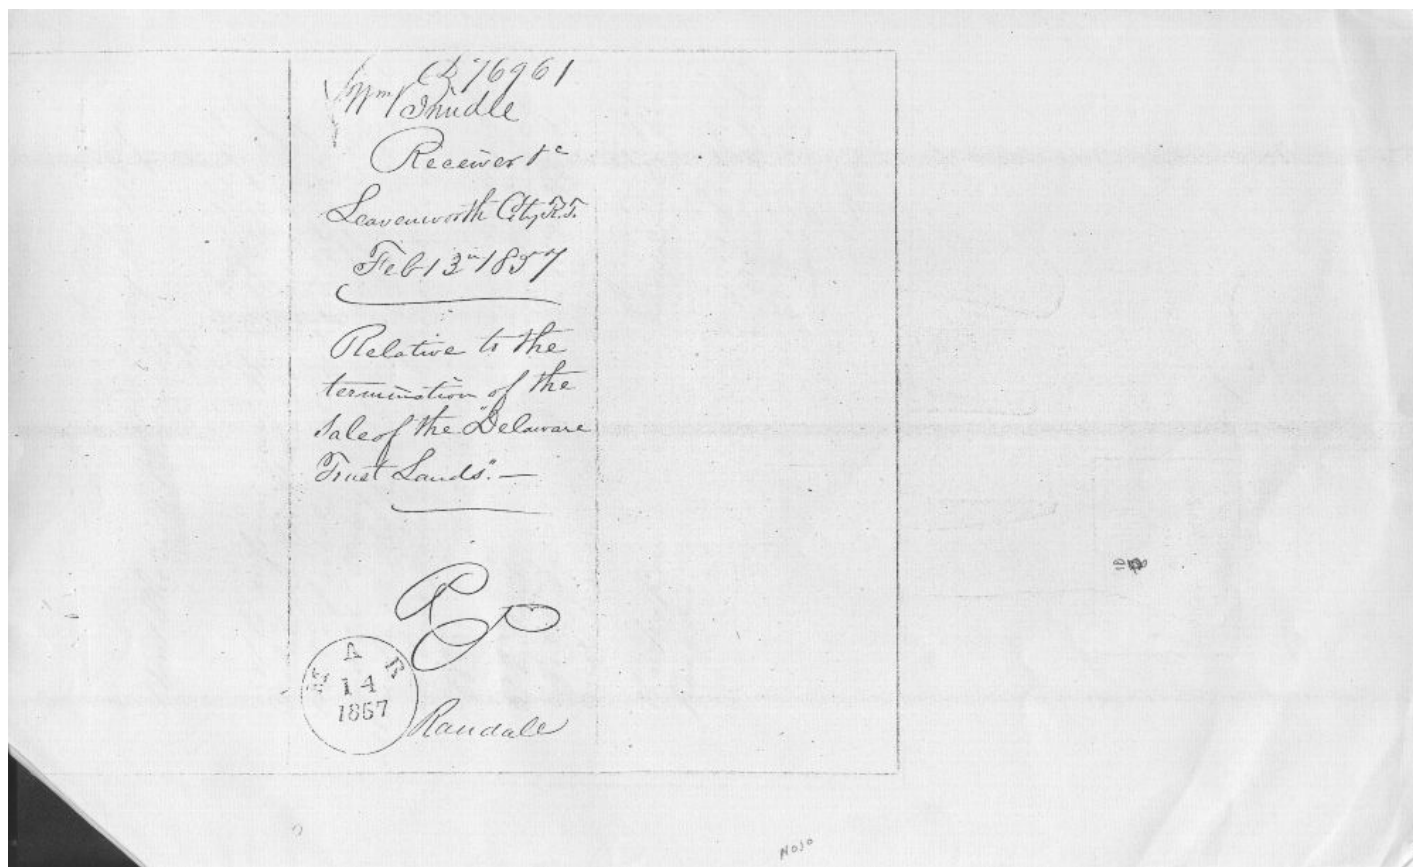 76961
Wm Brindle
Receiver &c
Leavenworth City K.T.
Feb 13" 1857
Relative to the
termination of the
Sale of the "Delaware
Trust Lands". —
MAR
14
1857
Randale